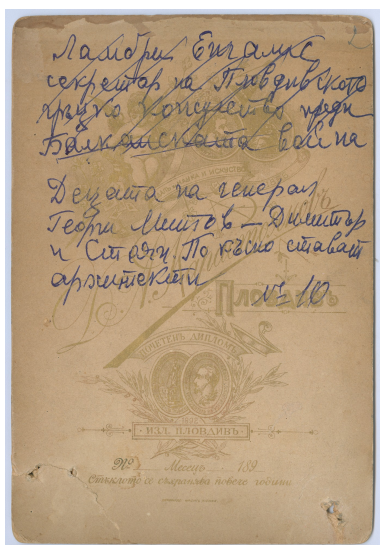 Ламбри Енчалис
секретар на Пловдивското
гръцко консулство преди
Балканската война
Децата на генерал
Георги Митов – Димитър
и Стоян. По късно стават
архитекти № 10
Пловдивъ
ПОЧЕТЕНЪ ДИПЛОМЪ
ИЗЛ. ПЛОВДИВЪ
№ Месец 189
Стъклото се съхранява много години